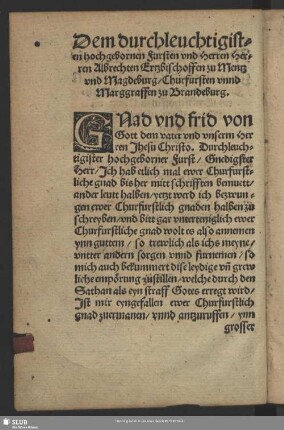 Dem durchleuchtigist-
en hochgebornen Fursten vnd Herren Her-
ren Albrechten Ertzbischoffen zu Mentz
vnd Magdeburg/ Churfursten vnnd
Marggraffen zu Brandeburg.
GNad vnd frid von
Gott dem vater vnd vnserm Her
ren Jhesu Christo. Durchleuch-
tigister hochgeborner Furst/ Gnedigster
Herr/ Ich hab etlich mal ewer Churfurst-
liche gnad bis her mitt schrifften bemuet/
ander leutt halben/ yetzt werd ich bezwun-
gen ewer Churfurstlich gnaden halben zu
schreyben/ vnd bitt gar vnterteniglich ewer
Churfurstliche gnad wolt es also annemen
ynn guttem/ so trewlich als ichs meyne/
vnnter andern sorgen vnnd furnemen/ so
mich auch bekummert dise leydige vñ grew
liche empörung zustillen/ welche durch den
Sathan als eyn straff Gotes erregt wird/
Ist mir eyngefallen ewer Churfurstlich
gnad zuermanen/ vnnd antzuruffen/ ynn
grosser
SLUB